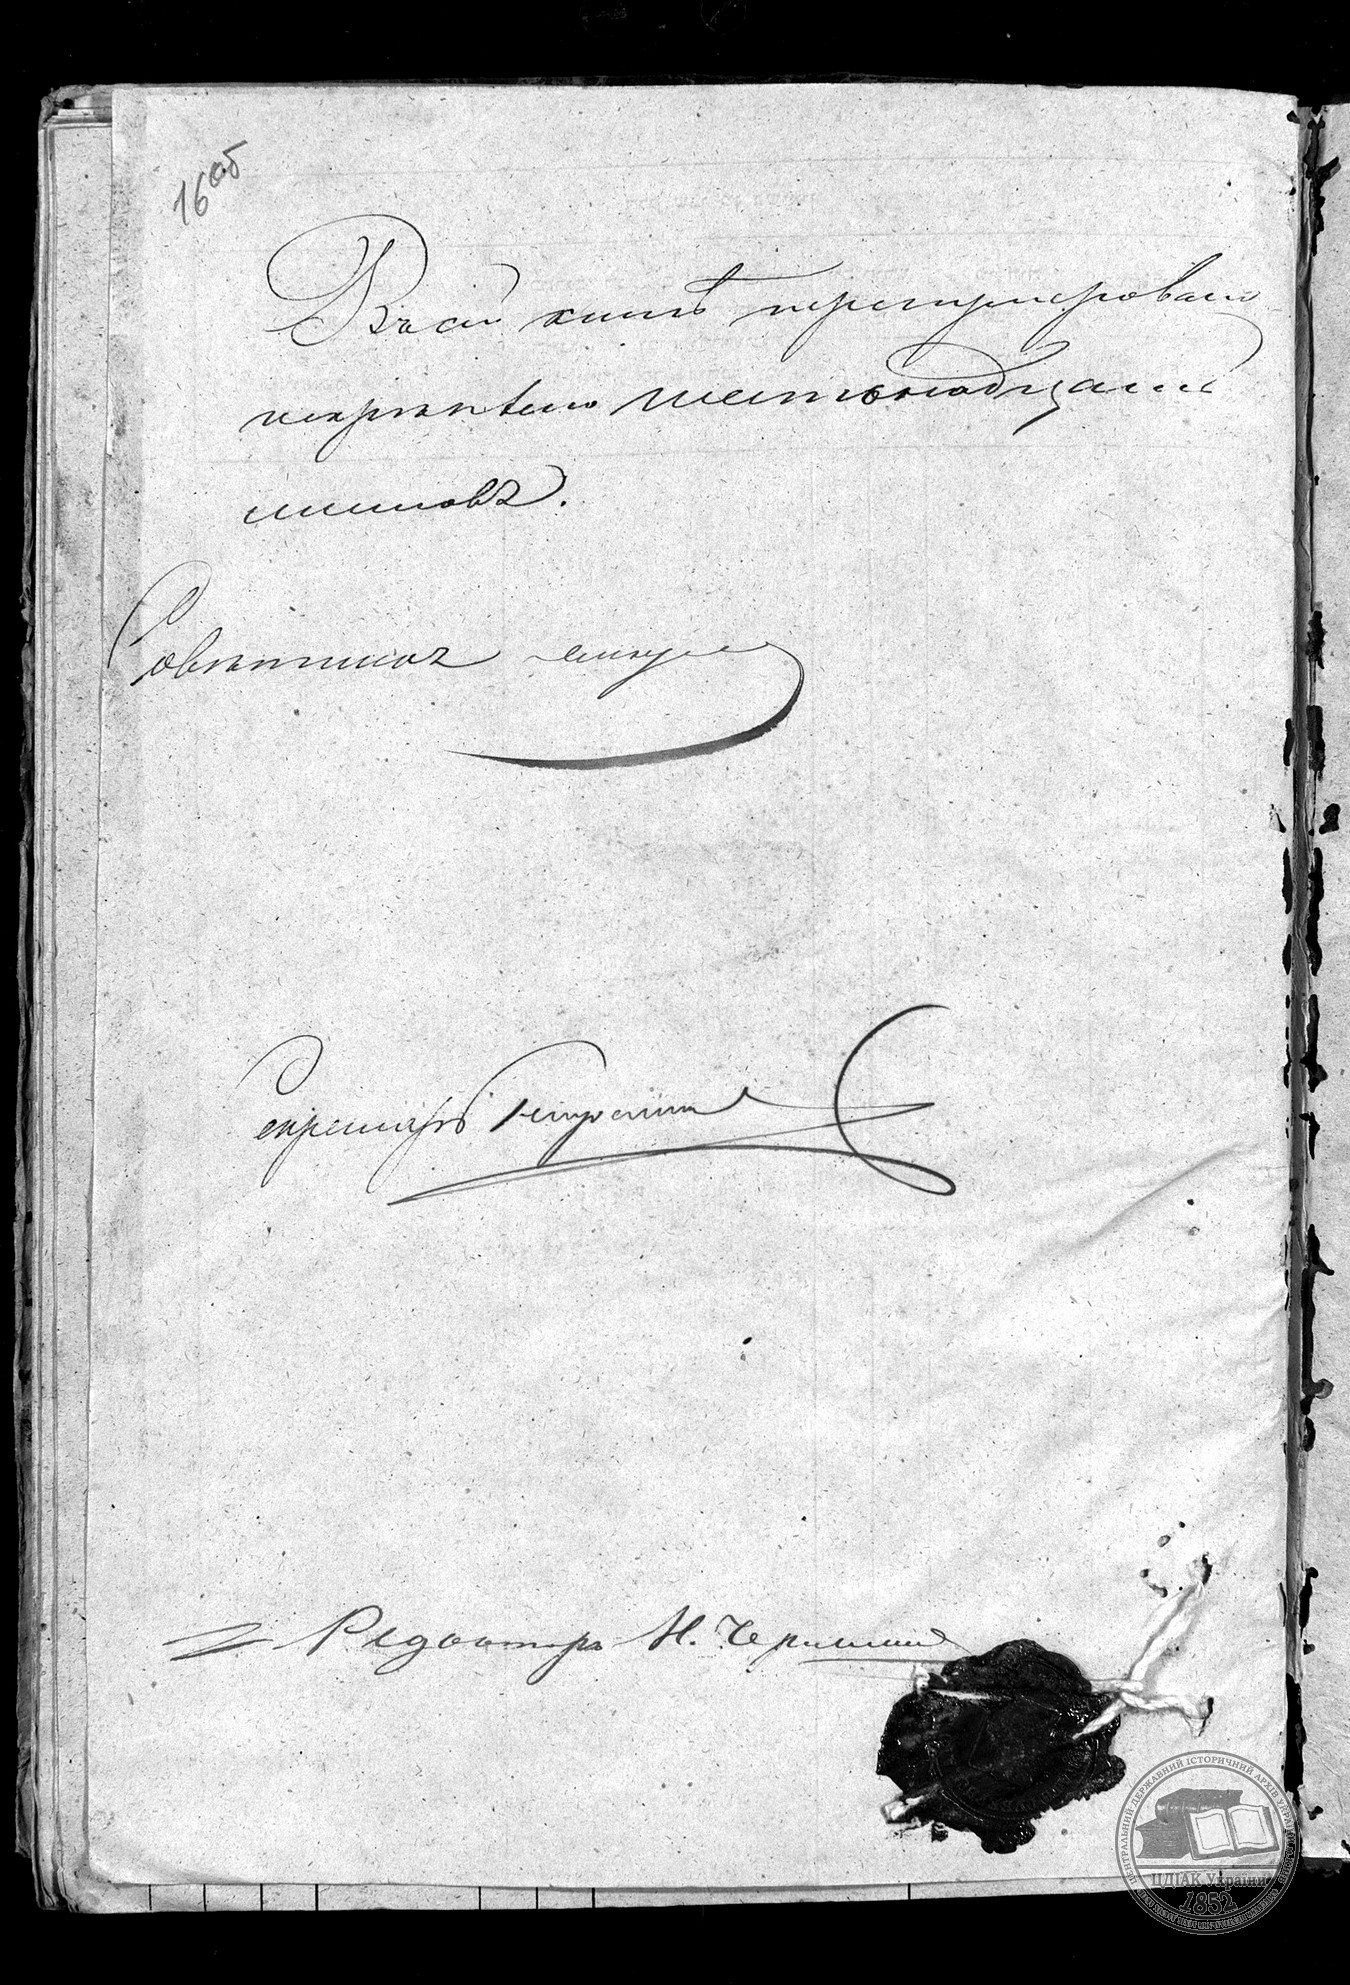 16 об
Въ сей книгѣ перенумеровано
и скрѣплено шестнадцать
листовъ.
Совѣтникъ
Секретарь
Редакторъ Н.
ЦЕНТРАЛЬНИЙ ДЕРЖАВНИЙ ІСТОРИЧНИЙ АРХІВ УКРАЇНИ
ЦДІАК України
1852